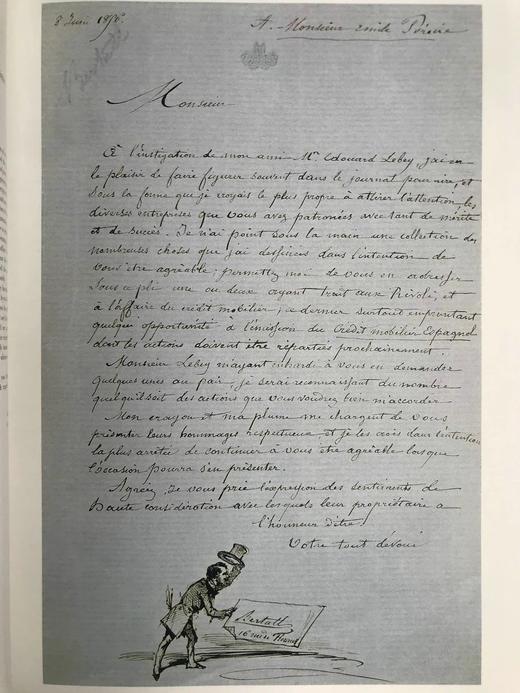 8 Juin 1856.
A. Monsieur Emile Péreire
Monsieur
à l'instigation de mon ami Mr. Edouard Lebey, j'ai eu
le plaisir de faire figurer souvent dans le journal pour rire, et
sous la forme que je croyais le plus propre à attirer l'attention, les
diverses entreprises que vous avez patronées avec tant de mérite
et de succès. Je n'ai point sous la main une collection des
nombreuses choses que j'ai dessinées dans l'intention de
vous être agréable; permettez moi de vous en adresser
sous ce pli une ou deux ayant trait aux Rivoli, et
à l'affaire du crédit mobilier; ce dernier surtout empruntant
quelque opportunité à l'émission du Crédit mobilier Espagnol
dont les actions doivent être réparties prochainement.
Monsieur Lebey m'ayant enhardi à vous en demander
quelques unes au pair, je serai reconnaissant du nombre
quel qu'il soit des actions que vous voudrez bien m'accorder
Mon crayon et ma plume me chargent de vous
présenter leurs hommages respectueux, et je les crois dans l'intention
la plus arrêtée de continuer à vous être agréable lorsque
l'occasion pourra s'en présenter.
Agréez, Je vous prie l'expression des sentiments de
haute considération avec lesquels leur propriétaire a
l'honneur d'être
Votre tout dévoué
Bertall
16 rue